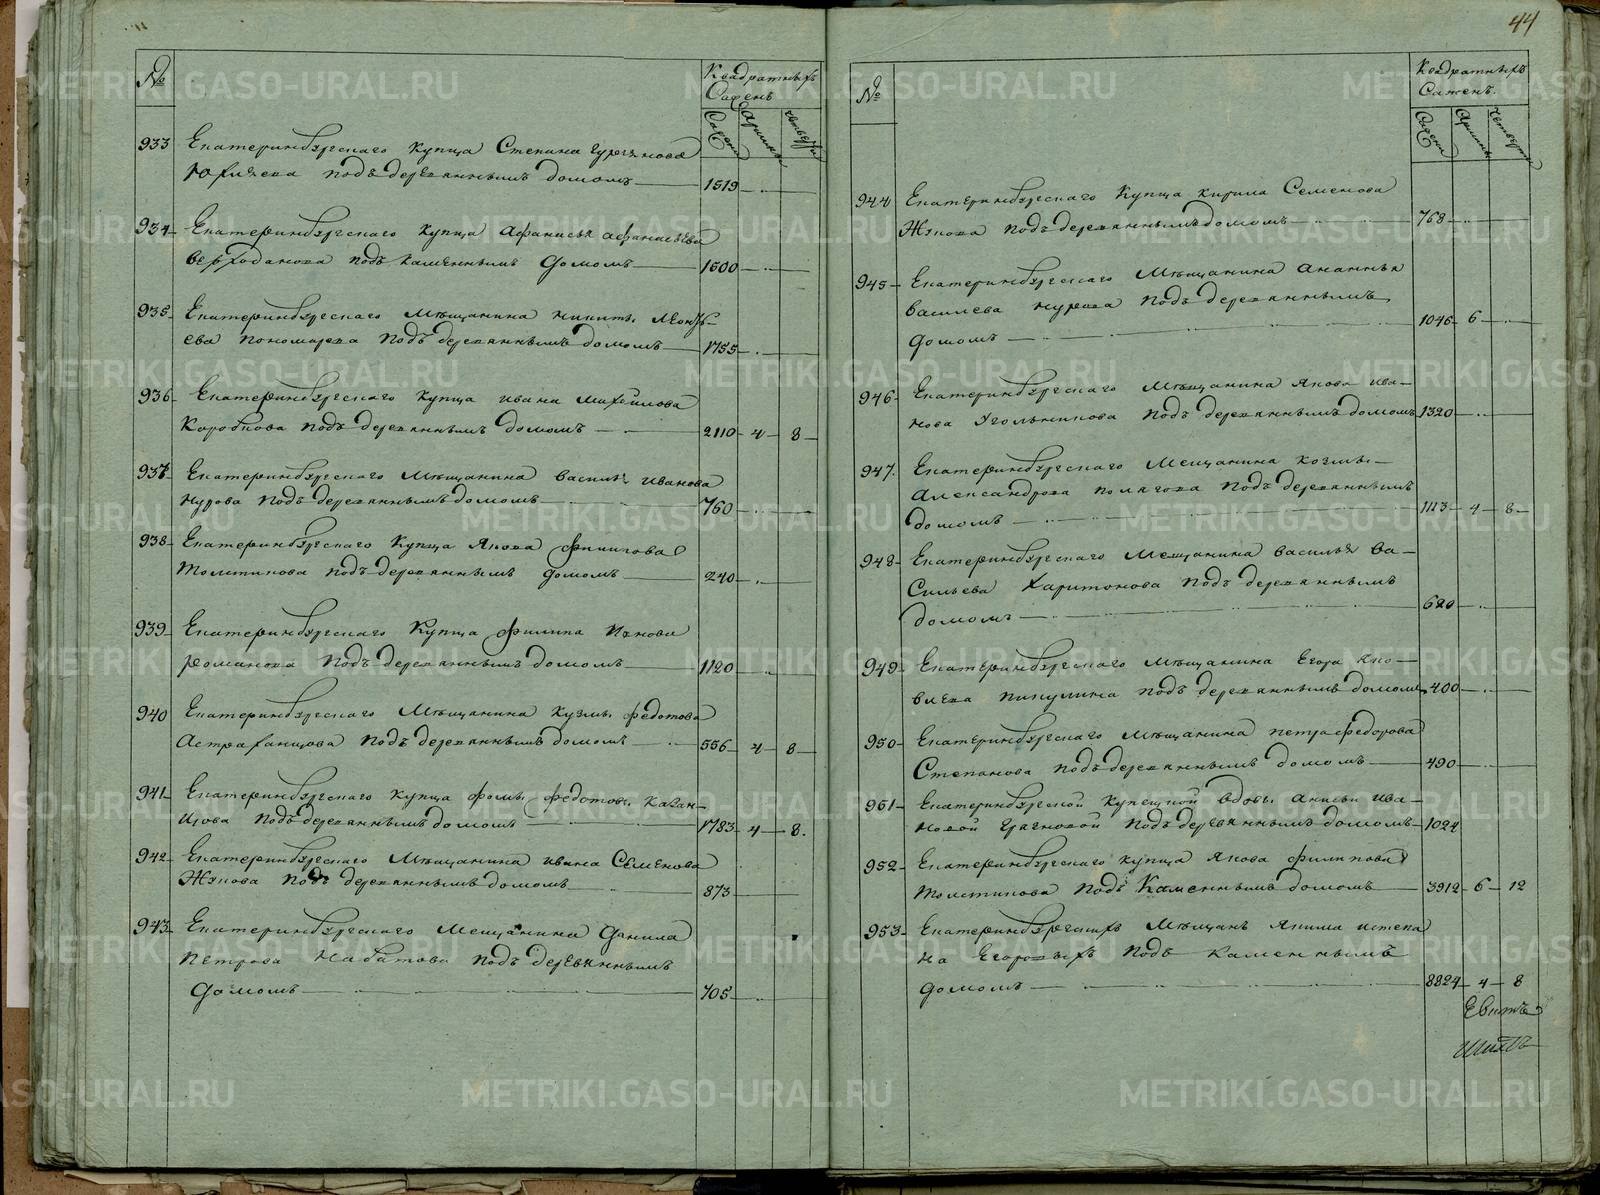 44
№
Квадратныхъ
Саженъ
Сажени
Аршины
Четверти
933 Екатеринбургскаго Купца Степина
подъ деревяннымъ домомъ 1519
934 Екатеринбургскаго Купца Афанасья Афанасьева
Верходанова подъ каменнымъ домомъ 1600
935 Екатеринбургскаго Мѣщанина Никиты
ева Пономарева подъ деревяннымъ домомъ 1755
936 Екатеринбургскаго Купца Ивана Михайлова
Коробкова подъ деревяннымъ домомъ 2110 4 8
937 Екатеринбургскаго Мѣщанина Василья Иванова
Нурова подъ деревяннымъ домомъ 760
938 Екатеринбургскаго Купца Якова Филипова
Толстикова подъ деревяннымъ домомъ 240
939 Екатеринбургскаго Купца Филипа Иванова
Романова подъ деревяннымъ домомъ 1120
940 Екатеринбургскаго Мѣщанина Кузмы Федотова
Астраханцова подъ деревяннымъ домомъ 556 4 8
941 Екатеринбургскаго Купца Фомы Федотов. Казан-
цова подъ деревяннымъ домомъ 1783 4 8
942 Екатеринбургскаго Мѣщанина Ивана Семенова
Жукова подъ деревяннымъ домомъ 873
943 Екатеринбургскаго Мещанина Данила
Петрова Набатова подъ деревяннымъ
домомъ 705
№
Квадратныхъ
Саженъ.
Сажени
Аршины
Четверти
944 Екатеринбургскаго Купца Кирила Семенова
Жукова подъ деревяннымъ домомъ 768
945 Екатеринбургскаго Мѣщанина Ананья
Васильева Нурова подъ деревяннымъ
домомъ 1046 6
946 Екатеринбургскаго Мѣщанина Якова Ива-
нова Угольникова подъ деревяннымъ домомъ 1320
947. Екатеринбургскаго Мещанина Козмы
Александрова подъ деревяннымъ
домомъ 1113 4 8
948 Екатеринбургскаго Мещанина Василья Ва-
сильева Харитонова подъ деревяннымъ
домомъ 620
949 Екатеринбургскаго Мѣщанина Егора Яко-
влева Пикулина подъ деревяннымъ домомъ 400
950 Екатеринбургскаго Мѣщанина Петра Федорова
Степанова подъ деревяннымъ домомъ 490
961 Екатеринбургской Купецкой Вдовы Анисьи Ива-
новой подъ деревяннымъ домомъ 1024
952 Екатеринбургскаго Купца Якова Филипова
Толстикова подъ Каменнымъ домомъ 3912 6 12
953 Екатеринбургскихъ Мѣщанъ Якима и Степа
на Егоровыхъ подъ Каменнымъ
домомъ 8824 4 8
METRIKI.GASO-URAL.RU